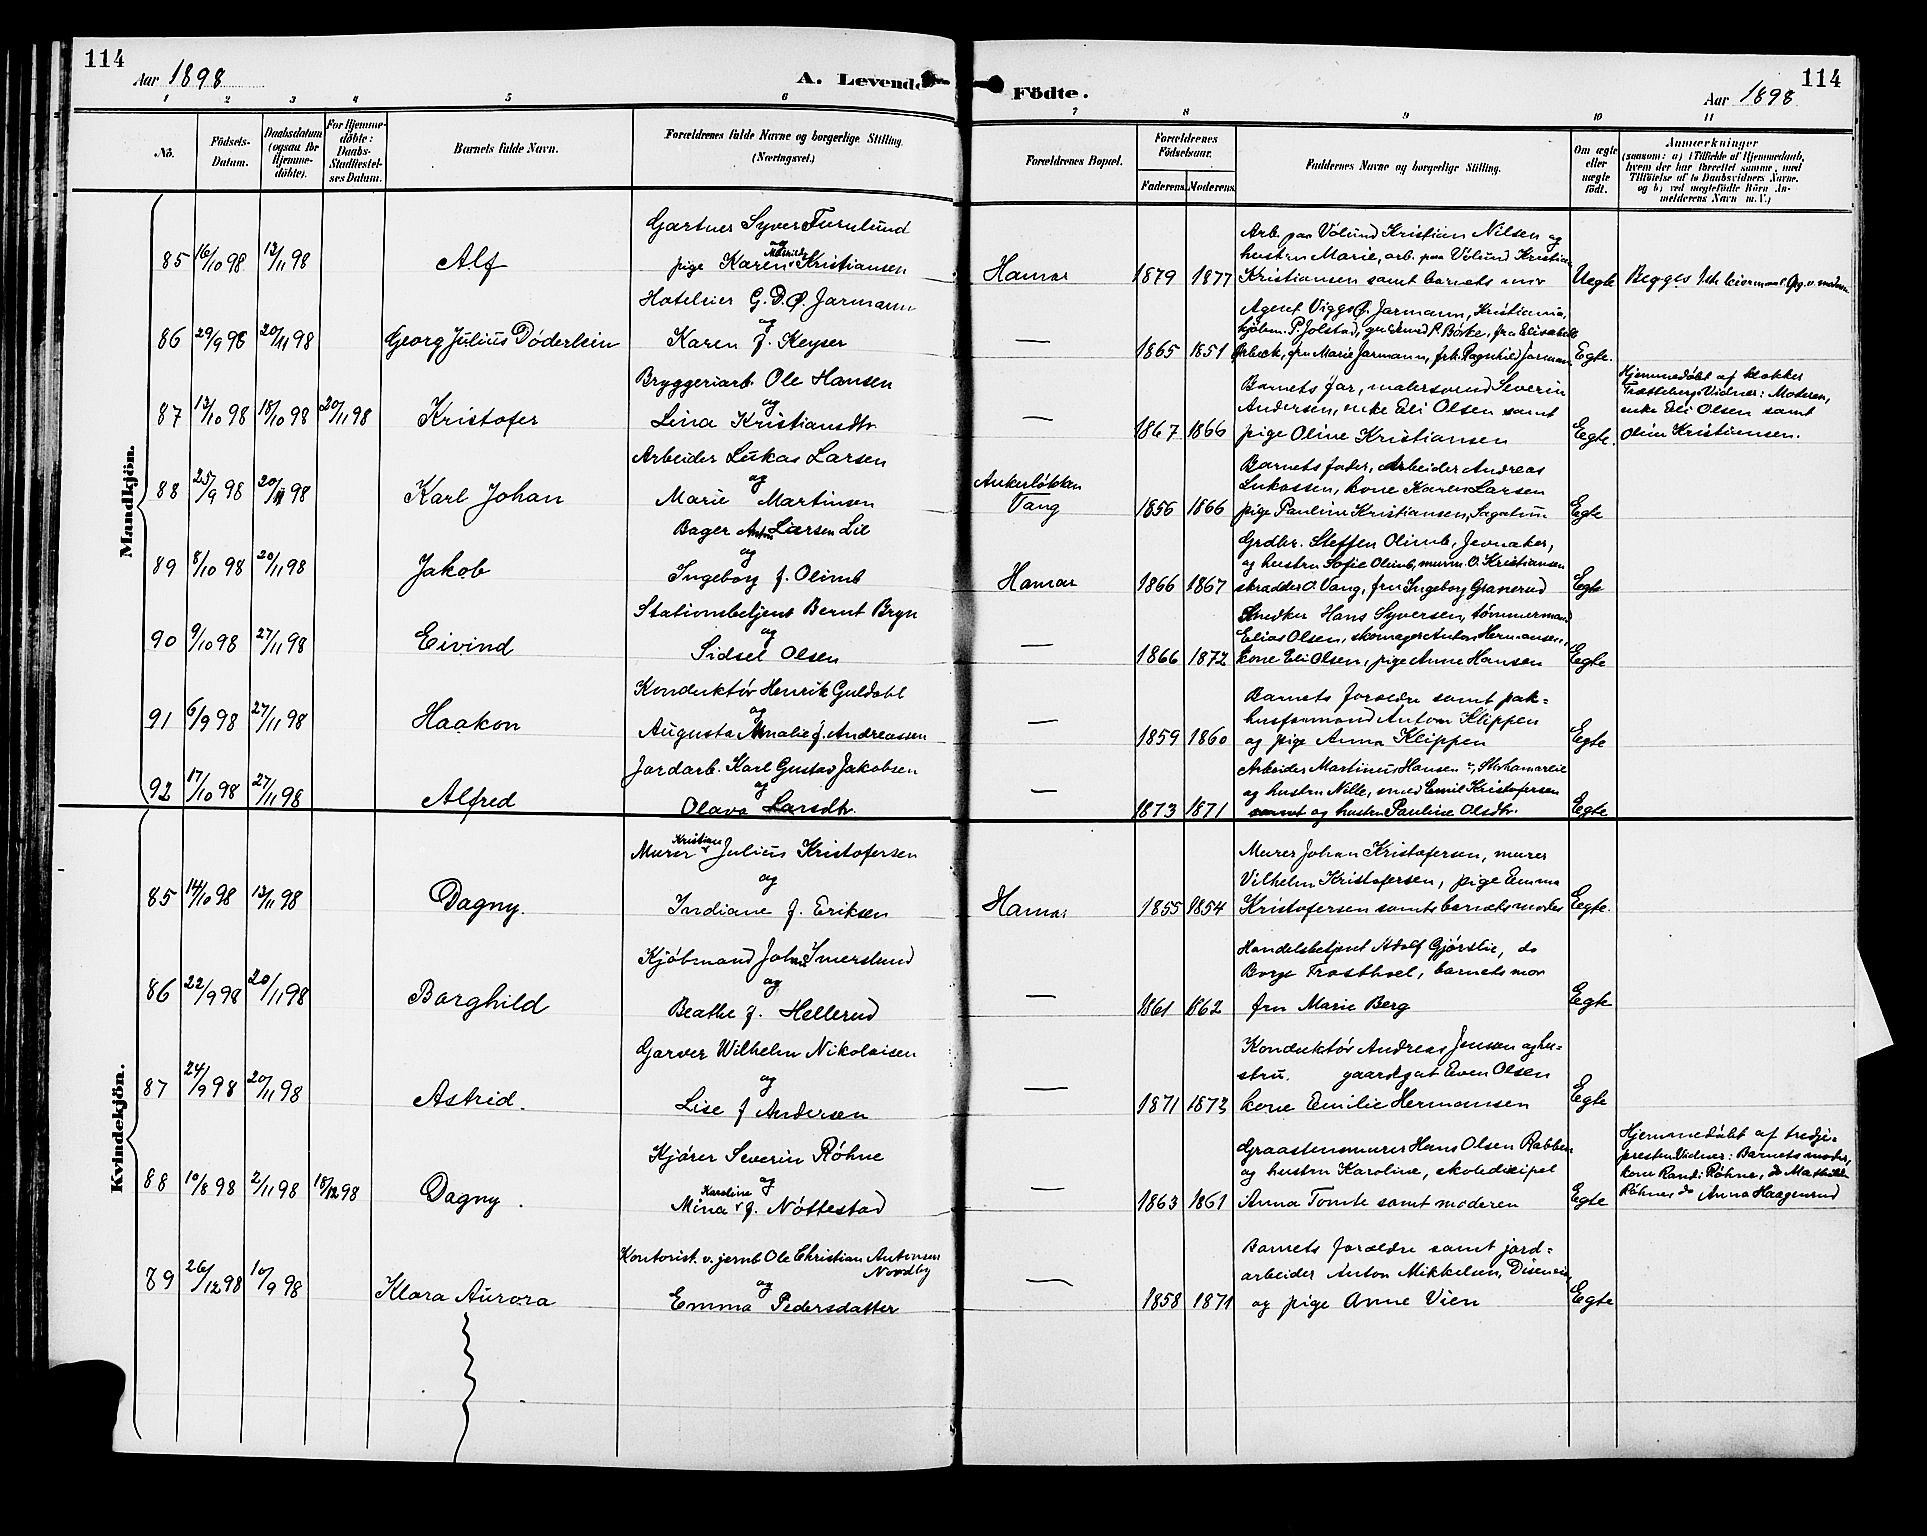 114
Aar 1898
A. Levende
Födte.
Aar 1898
114
1 2 3 4 5 6 7 8 9 10 11
No.
Födsels-
Datum.
Daabsdatum
(ogsaa for
Hjemme-
döbte).
For Hjemme-
döbte:
Daabs-
Stadfæstel-
ses Datum.
Barnets fulde Navn.
Forældrenes fulde Navne og borgerlige Stilling.
(Næringsvei.)
Forældrenes Bopæl.
Forældrenes
Födselsaar.
Faderens. Moderens.
Faddernes Navne og borgerlige Stilling.
Om ægte
eller
uægte
födt.
Anmærkninger
(saasom: a) i Tilfælde af Hjemmedaab,
hvem der har forrettet samme, med
Tilföielse af to Daabsvidners Navne.
og b) ved uægtefödte Börn An-
melderens Navn m. V.)
Mandkjön.
85 16/10 98 13/11 98 Alf
Gartner Syver Furulund
og
pige Karen Mathilde Kristiansen
Hamar 1879 1877
Arb. paa Vølund Kristian Nilsen og
hustru Marie, arb. paa Vølund Kristian
Kristiansen samt barnets mor
Uegte
Begges 1ste leiermaal. Opg. v. moderen
86 29/9 98 20/11 98 Georg Julius Döderlein
Hoteleier G. D. Ø. Jarmann
og
Karen f. Keyser
— 1865 1851
Agent Viggo Ø. Jarmann, Kristiania,
kjøbm. P. Jolstad, guldsmed P. Böke, fru Elisabeth
fru Marie Jarmann, frk. Ragnhild Jarmann
Egte.
87 13/10 98 18/10 98 20/11 98 Kristofer
Bryggeriarb. Ole Hansen
og
Lina Kristiansdtr
— 1867 1866
Barnets far, malersvend Severin
Andersen, enke Eli Olsen samt
pige Oline Kristiansen
Egte.
Hjemmedøbt af klokker
Trættebergs Vidner: Moderen,
enke Eli Olsen samt
Oline Kristiansen.
88 25/9 98 20/11 98 Karl Johan
Arbeider Lukas Larsen
og
Marie Martinsen
Ankerløkken
Vang
1856 1866
Barnets fader, arbeider Andreas
Lukassen, kone Karen Larsen
pige Pauline Kristiansen, Sagatun
Egte
89 8/10 98 20/11 98 Jakob
Bager Anton Larsen Lie
og
Ingeborg f. Olimb
Hamar 1866 1867
Grdbr. Steffen Olimb, Jevnaker,
og hustru Sofie Olimb, murm. O. Kristiansen
skrædder O. Vang, fru Ingeborg Granerud
Egte
90 9/10 98 27/11 98 Eivind
Stationsbetjent Bernt Bryn
og
Sidsel Olsen
— 1866 1872
Snedker Hans Syversen, tømmermand
Elias Olsen, skomager Anton Hermansen,
kone Eli Olsen, pige Anne Hansen
Egte
91 6/9 98 27/11 98 Haakon
Konduktør Henrik Guldahl
og
Augusta Amalie f. Andreassen
— 1859 1860
Barnets forældre samt pak-
husformand Anton Klippen
og pige Anna Klippen
Egte
92 17/10 98 27/11 98 Alfred
Jordarb. Karl Gustav Jakobsen
og
Olava Larsdtr.
— 1873 1871
Arbeider Martinus Hansen
og hustru Nille, smed Emil Kristofersen
og hustru Pauline Olsdtr.
Egte
Kvindekjön.
85 14/10 98 13/11 98 Dagny.
Murer Kristian Julius Kristofersen
og
Indiane f. Eriksen
Hamar 1855 1854
Murer Johan Kristofersen, murer
Vilhelm Kristofersen, pige Emma
Kristofersen samt barnets moder
Egte.
86 22/9 98 20/11 98 Borghild
Kjøbmand Johan Smerslund
og
Beathe f. Hellerud
— 1861 1862
Handelsbetjent Adolf Gjørslie, do
Borge Trosthoel, barnets mor
fru Marie Berg
Egte
87 24/9 98 20/11 98 Astrid.
Garver Wilhelm Nikolaisen
og
Lise f Andersen
— 1871 1873
Konduktør Andreas Jensen og hu-
stru. gaardgut Even Olsen
kone Emilie Hermansen
Egte
88 10/8 98 2/11 98 18/12 98 Dagny.
Kjører Severin Röhne
og
Mina Karoline f. Nöttestad
— 1863 1861
Graastensmurer Hans Olsen Bakken
og hustru Karoline, skoledicipel
Anna Tomte samt moderen
Egte
Hjemmedøbt af tredje-
presten Vidner: Barnets moder,
kone Randi Röhne, do Mathilde
Röhne, do Anna Haagenrud
89 26/12 98 10/9 98 Klara Aurora
Kontorist v. jernb Ole Christian Antonsen
Nordby
og
Emma Pedersdatter
— 1858 1871
Barnets forældre samt jord-
arbeider Anton Mikkelsen, Disen
og pige Anne Vien
Egte